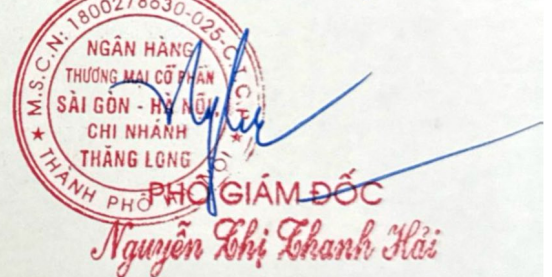 M.S.C.N: 1800278630-025-C.T.C.P
NGÂN HÀNG
THƯƠNG MẠI CỔ PHẦN
SÀI GÒN - HÀ NỘI
CHI NHÁNH
THĂNG LONG
★ THÀNH PHỐ
PHÓ GIÁM ĐỐC
Nguyễn Thị Thanh Hải